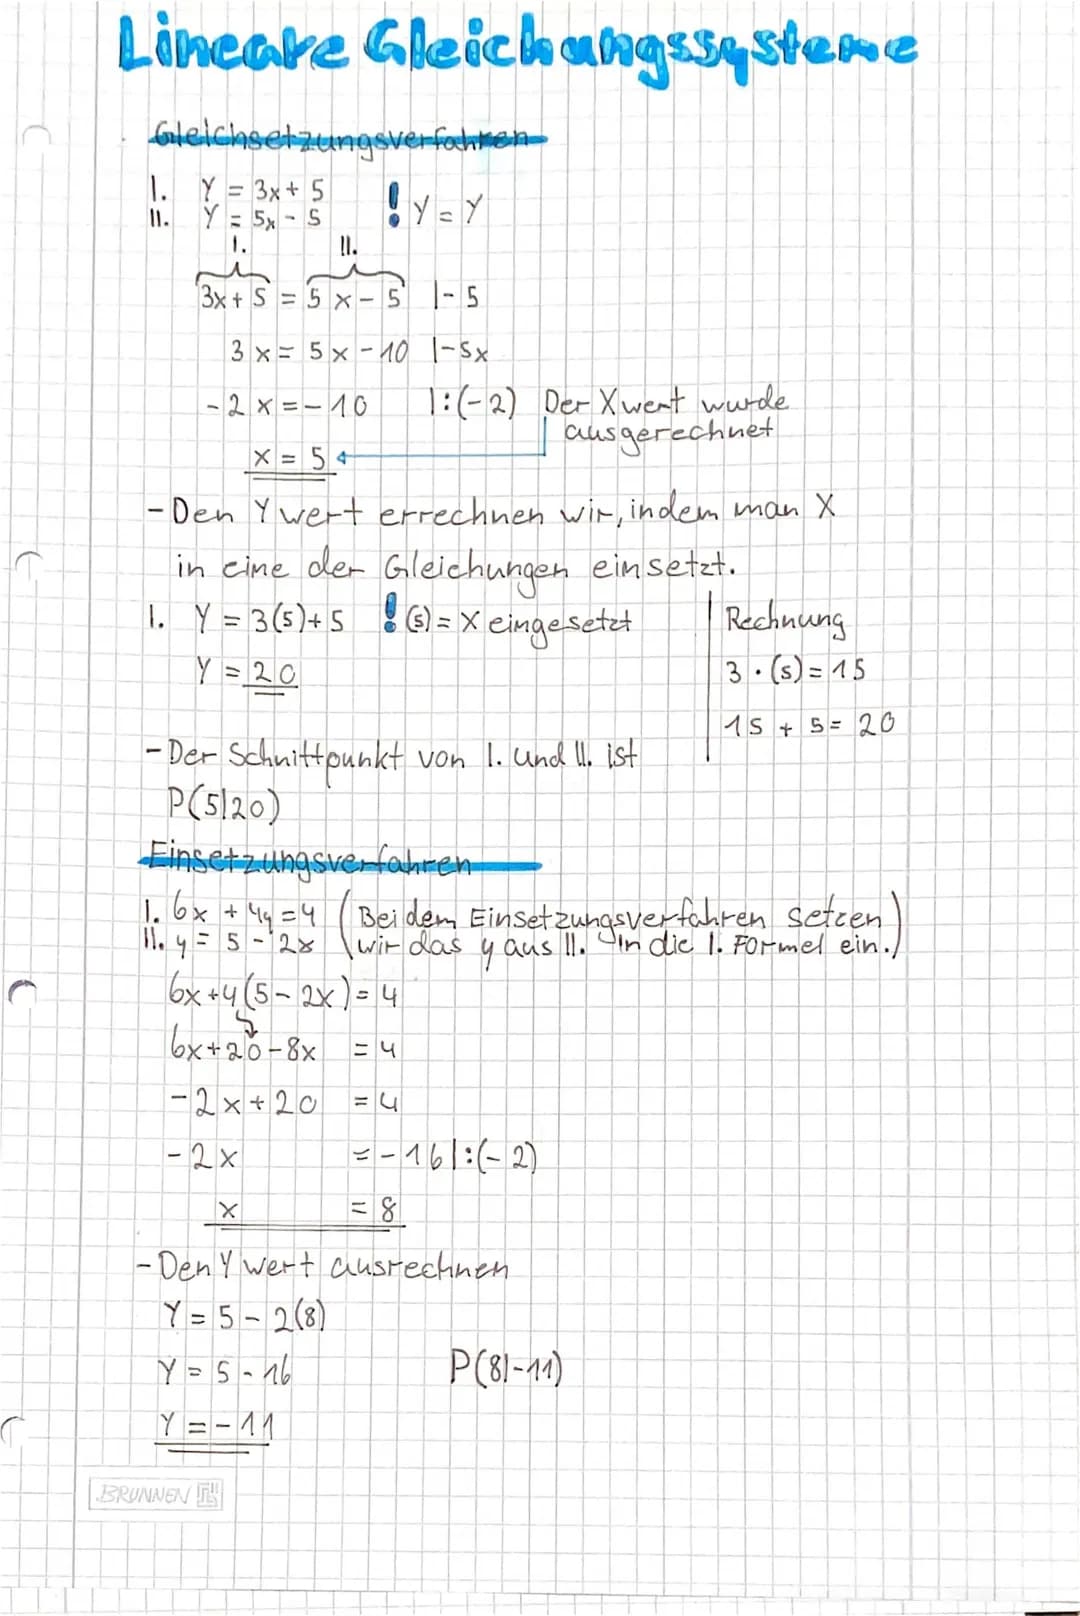 Lineare Gleichungssysteme
Gleichsetzungsverfahren
I. Y = 3x + 5
II. Y = 5x - 5
! Y = Y
I. II.
3x + 5 = 5x - 5 |- 5
3x = 5x - 10 |-5x
-2x = -10 |:(-2) Der X wert wurde
ausgerechnet
x = 5
- Den Y wert errechnen wir, indem man X
in eine der Gleichungen einsetzt.
I. Y = 3(5)+5 ! (5) = X eingesetzt
Y = 20
Rechnung
3 · (5) = 15
15 + 5 = 20
- Der Schnittpunkt von I. und II. ist
P(5|20)
Einsetzungsverfahren
I. 6x + 4y = 4 (Bei dem Einsetzungsverfahren setzen
II. y = 5 - 2x wir das y aus II. in die I. Formel ein.)
6x+4(5-2x) = 4
6x+20-8x = 4
-2x+20 = 4
-2x = -16 |:(-2)
x = 8
- Den Y wert ausrechnen
Y = 5 - 2(8)
Y = 5 - 16
P(8|-11)
Y = -11
BRUNNEN